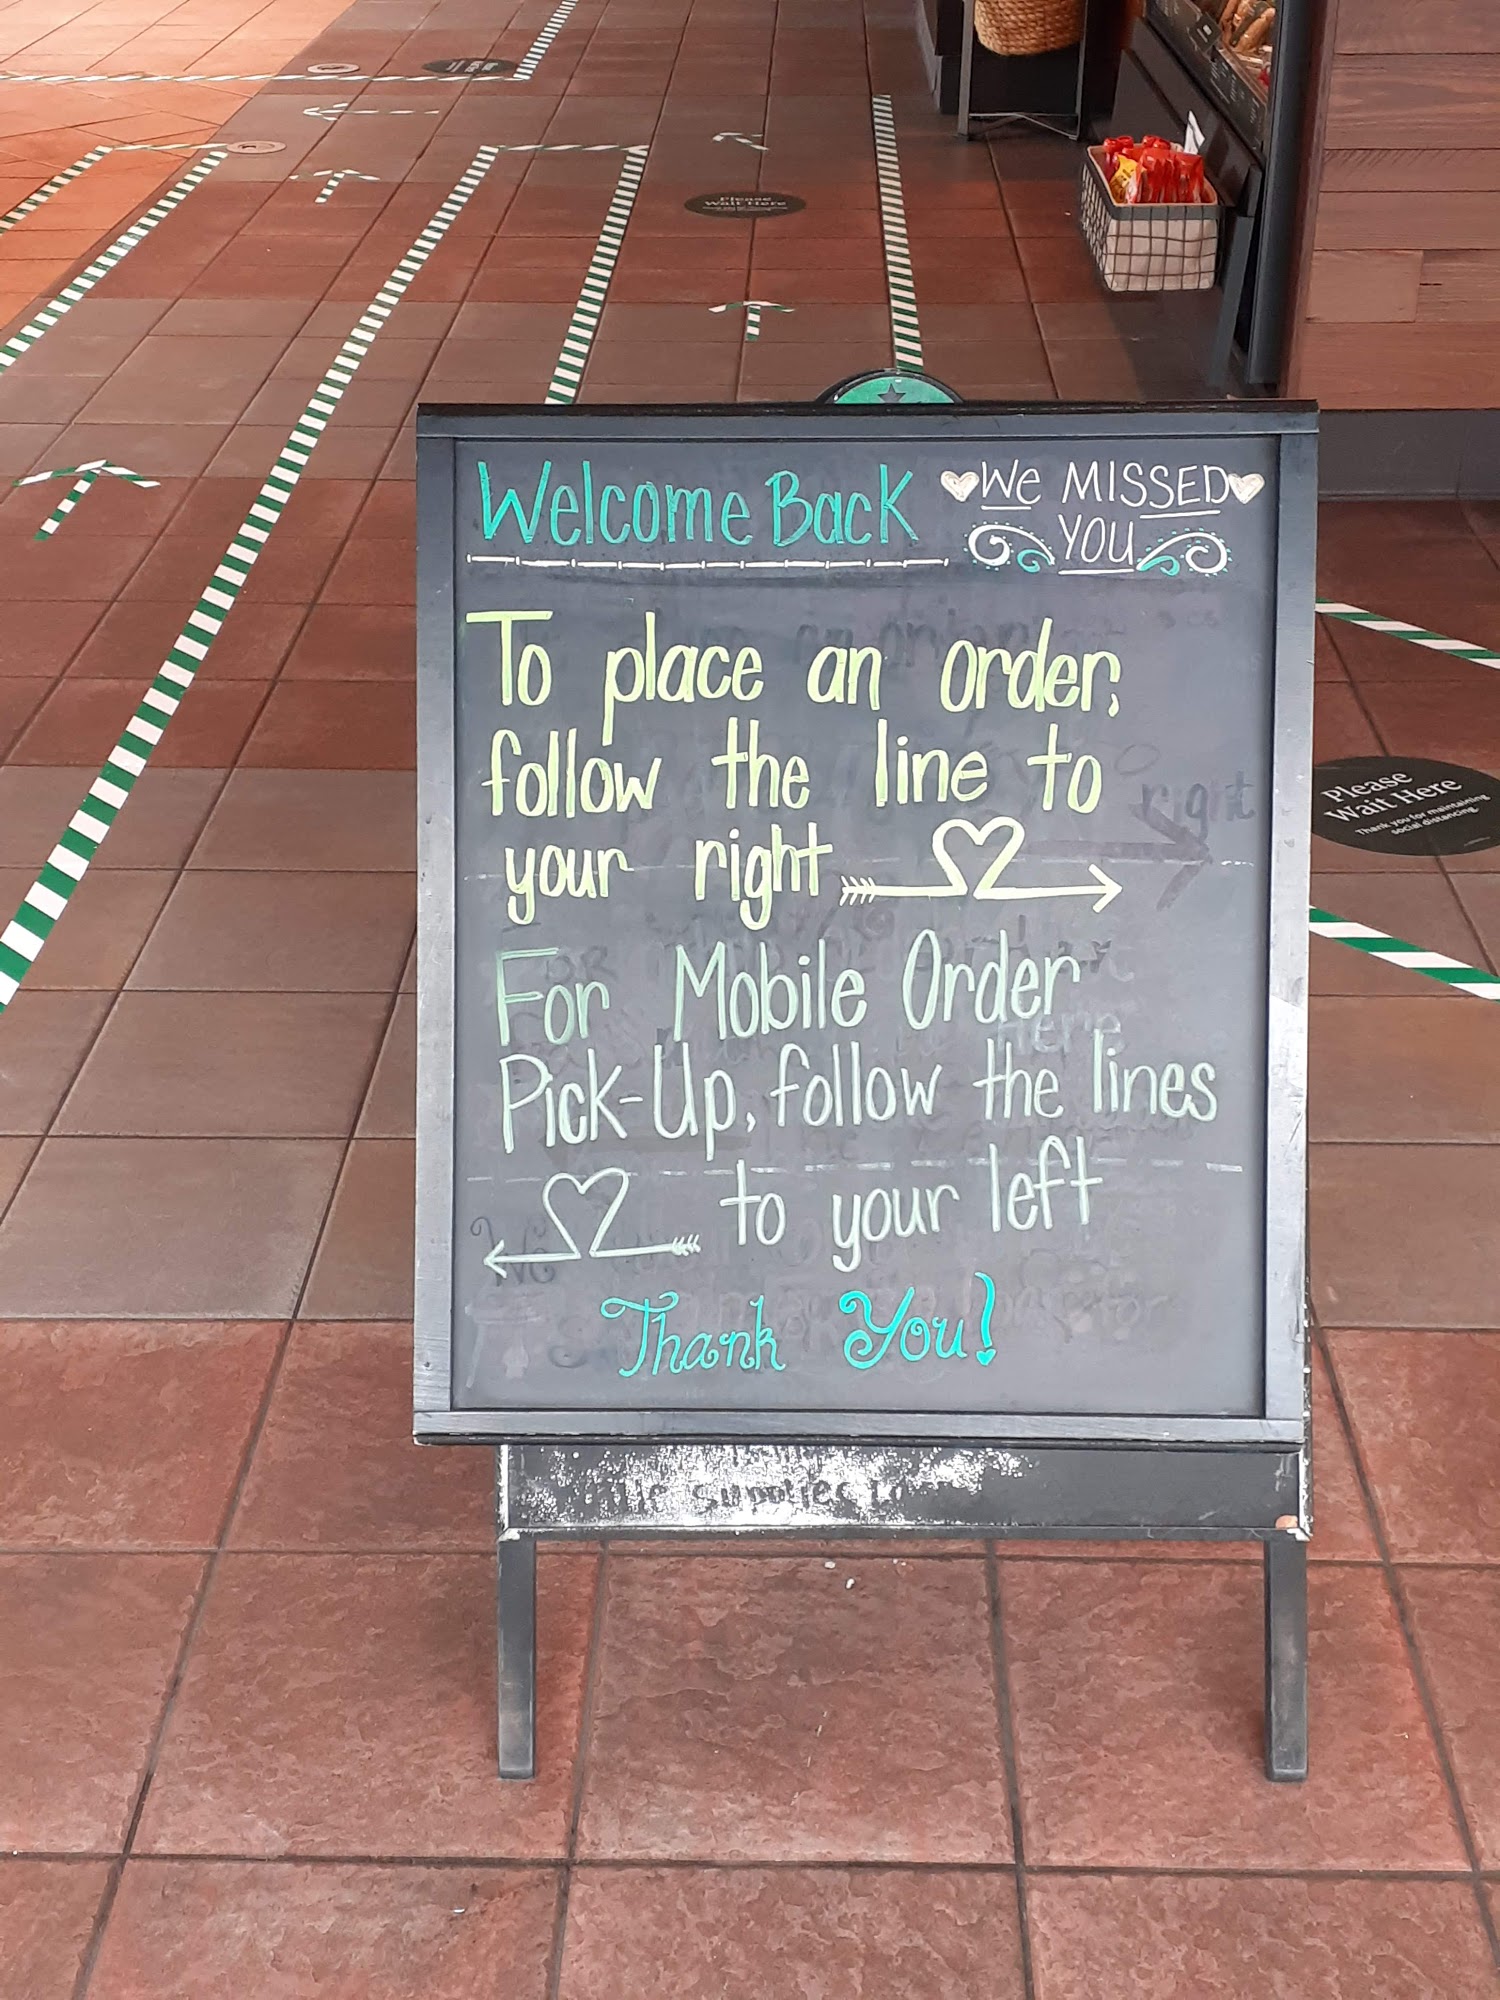 Please
Wait Here
Welcome Back
We MISSED
YOU
To place an order,
follow the line to
your right
For Mobile Order
Pick-Up, follow the lines
to your left
Thank You!
Please
Wait Here
Thank you for maintaining
social distancing.
right